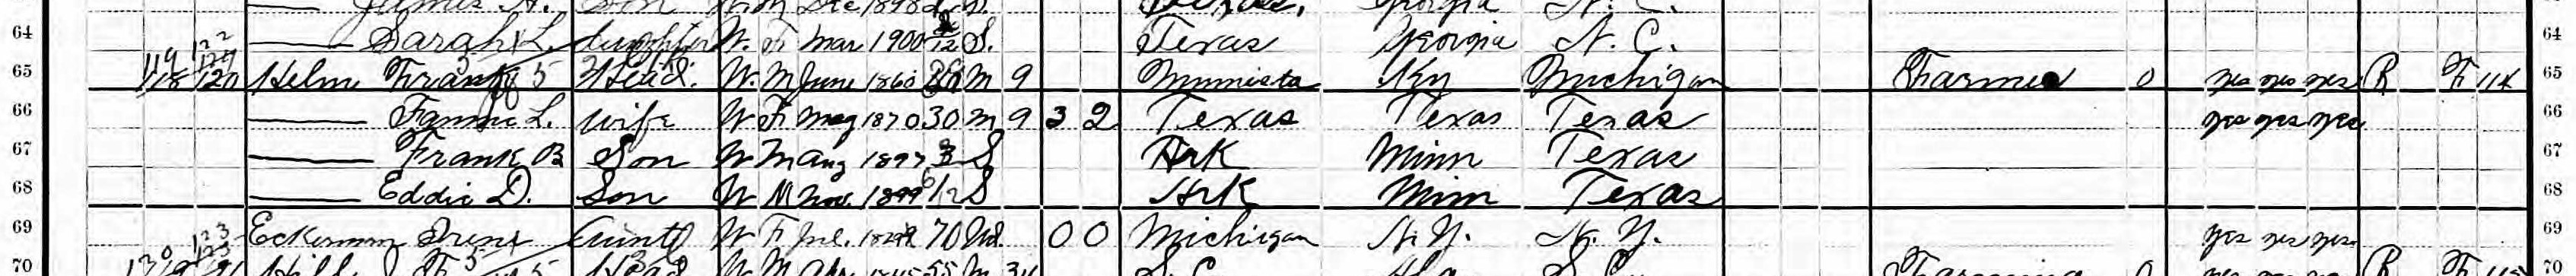 James H. Son W. M Dec 1898 S. Texas, Georgia N. C.
64 Sarah L. daughter W. F Mar 1900 /12 S. Texas Georgia N. C. 64
65 Helm Frank Head. W. M June 1860 M 9 Minnista Ky Michigan Farmer 0 yes yes yes R F 114 65
66 Fannie L. wife W F May 1870 30 M 9 3 2 Texas Texas Texas yes yes yes 66
67 Frank B Son W M Aug 1897 S Ark Minn Texas 67
68 Eddie D. Son W M Nov. 1899 6/12 S Ark Minn Texas 68
69 Eckerman Irene Aunt W F Jul. 70 Wd. 0 0 Michigan N. Y. N. Y. yes yes yes 69
70 Hill Head W M Apr 55 M S. C. S. C. Farming 0 yes yes yes R F 70